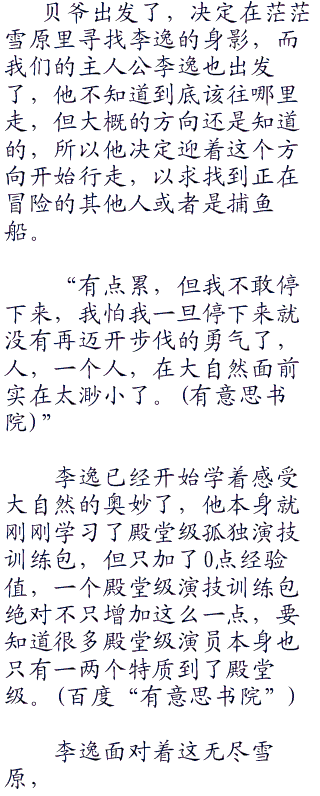 贝爷出发了，决定在茫茫
雪原里寻找李逸的身影，而
我们的主人公李逸也出发
了，他不知道到底该往哪里
走，但大概的方向还是知道
的，所以他决定迎着这个方
向开始行走，以求找到正在
冒险的其他人或者是捕鱼
船。
“有点累，但我不敢停
下来，我怕我一旦停下来就
没有再迈开步伐的勇气了，
人，一个人，在大自然面前
实在太渺小了。(有意思书
院)”
李逸已经开始学着感受
大自然的奥妙了，他本身就
刚刚学习了殿堂级孤独演技
训练包，但只加了0点经验
值，一个殿堂级演技训练包
绝对不只增加这么一点，要
知道很多殿堂级演员本身也
只有一两个特质到了殿堂
级。(百度“有意思书院”)
李逸面对着这无尽雪
原，